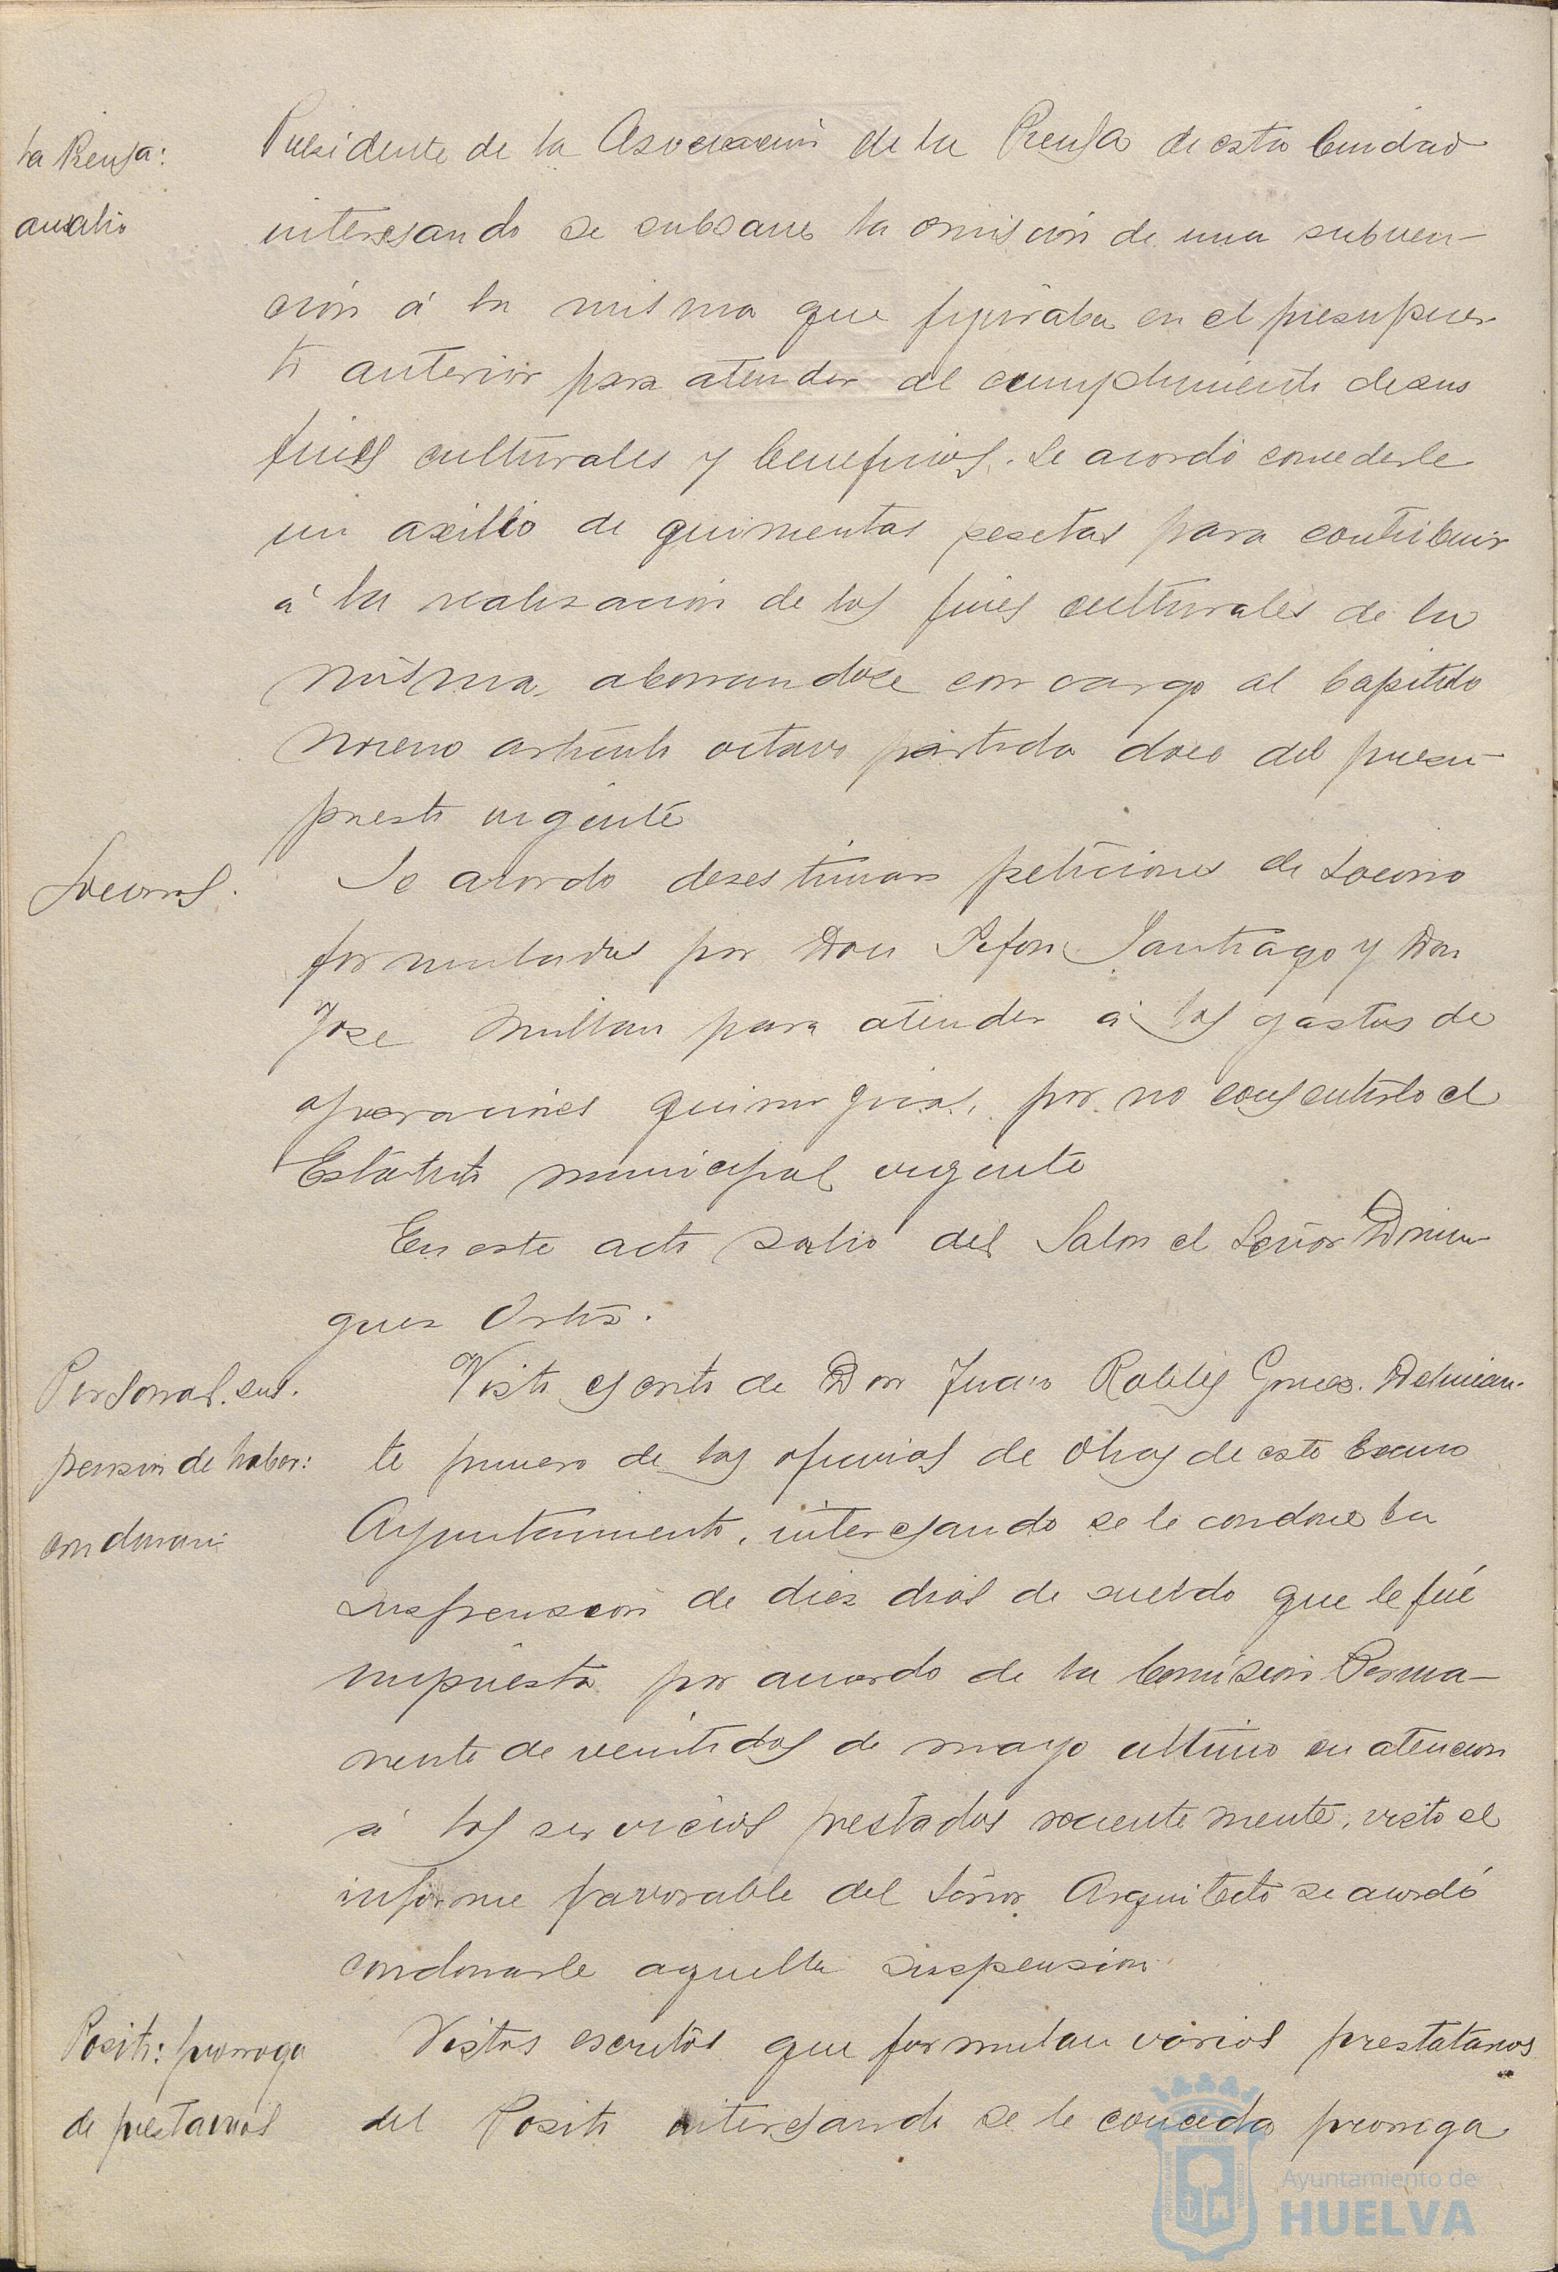 La Prensa:
auxilio
Presidente de la Asociacion de la Prensa de esta Ciudad
interesando se subsane la omisión de una subven-
ción á la misma que figuraba en el presupues-
to anterior para atender al cumplimiento de sus
fines culturales y beneficios. Se acordó concederle
un axilio de quinientas pesetas para contribuir
á la realizacion de los fines culturales de la
misma, abonandose con cargo al Capitulo
noveno articulo octavo partida doce del presu-
puesto vigente
Socorros.
Se acordo desestimar peticiones de Socorro
formuladas por Don Santiago y Don
José Millan para atender á los gastos de
operaciones quirurgicas, por no consentirlo el
Estatuto municipal vigente
En este acto salio del Salon el Señor Domin-
guez Ortiz.
Personal. sus-
pension de haber:
condonacion
Visto escrito de Don Juan Robles Gomez. Delinean-
te primero de las oficinas de Obras de este Excmo
Ayuntamiento, interesando se le condone la
suspension de diez dias de sueldo que le fué
impuesta por acuerdo de la Comision Perma-
nente de veintidos de mayo ultimo en atencion
á los servicios prestados recientemente, visto el
informe favorable del Señor Arquitecto se acordó
condonarle aquella suspension.
Posito: prorroga
de prestamos
Vistos escritos que formulan varios prestatarios
del Posito interesando se le conceda prorroga
Ayuntamiento de
HUELVA